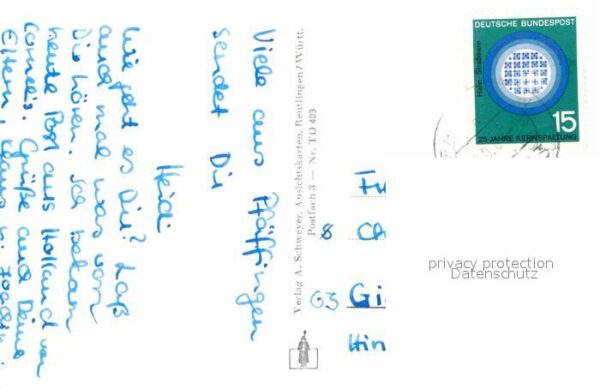 Viele aus Pfäffingen
sendet Dir
Heidi
Wie geht es Dir? Laß
auch mal was von
Dir hören. Ich bekam
heute Post aus Holland von
Grüße auch Deine
Eltern,
Verlag A. Schweyer, Ansichtskarten, Reutlingen/Württ.
Postfach 3 — Nr. TD 403
DEUTSCHE BUNDESPOST
Hahn · Straßmann
15
25 JAHRE KERNSPALTUNG
8
63 Gi
Hin
privacy protection
Datenschutz